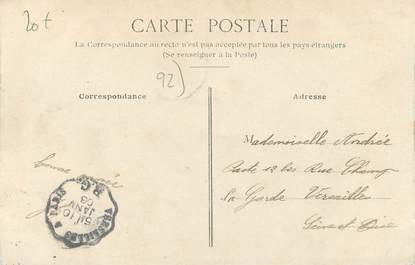 20€
CARTE POSTALE
La Correspondance au recto n'est pas acceptée par tous les pays étrangers
(Se renseigner à la Poste)
92)
Correspondance
Adresse
Mademoiselle Andrée
12 bis Rue Champ
la Garde Versaille
Seine et Oise
bonne année
VERSAILLES A PARIS
10
JANV
03
R.G.